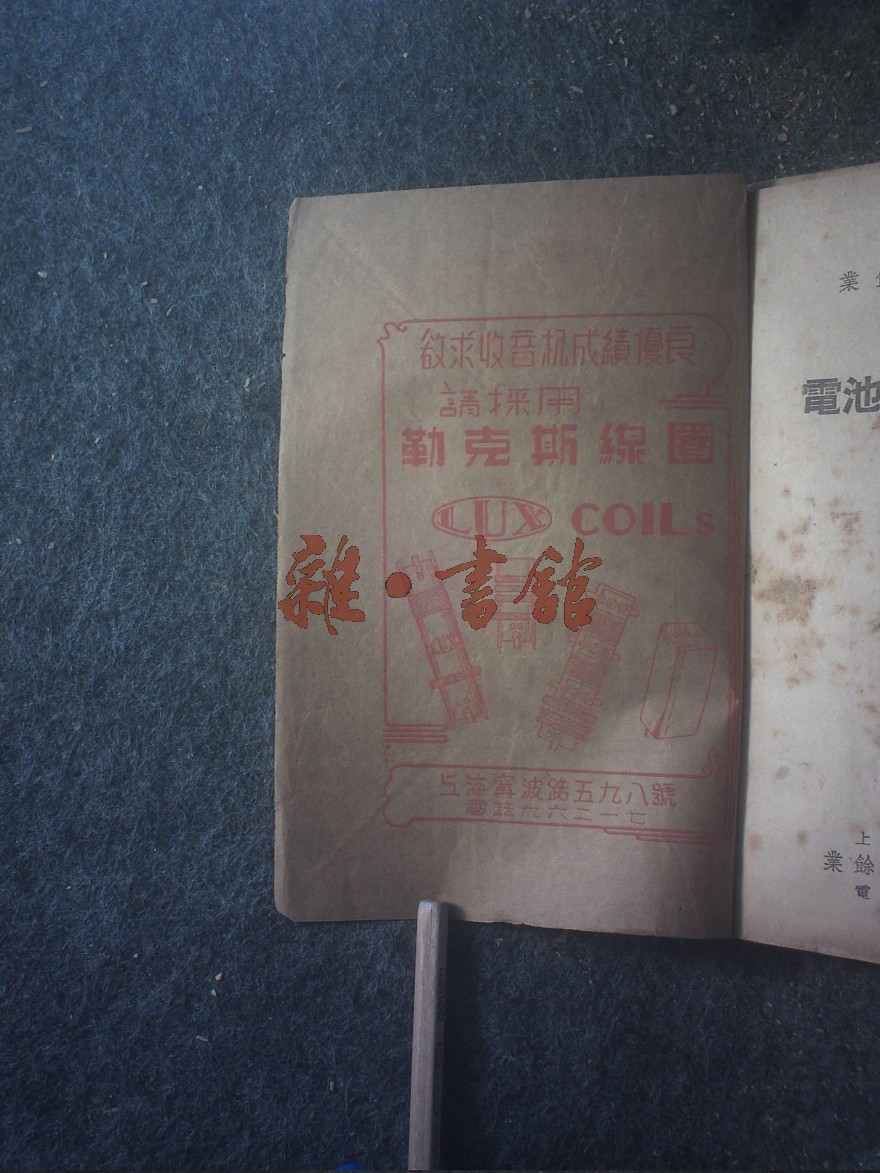 欲求收音机成績優良
請採用
勒克斯線圈
LUX COILs
雜·書館
上海寧波路五九八號
電話九六二一七
業
電池
上
業餘
電